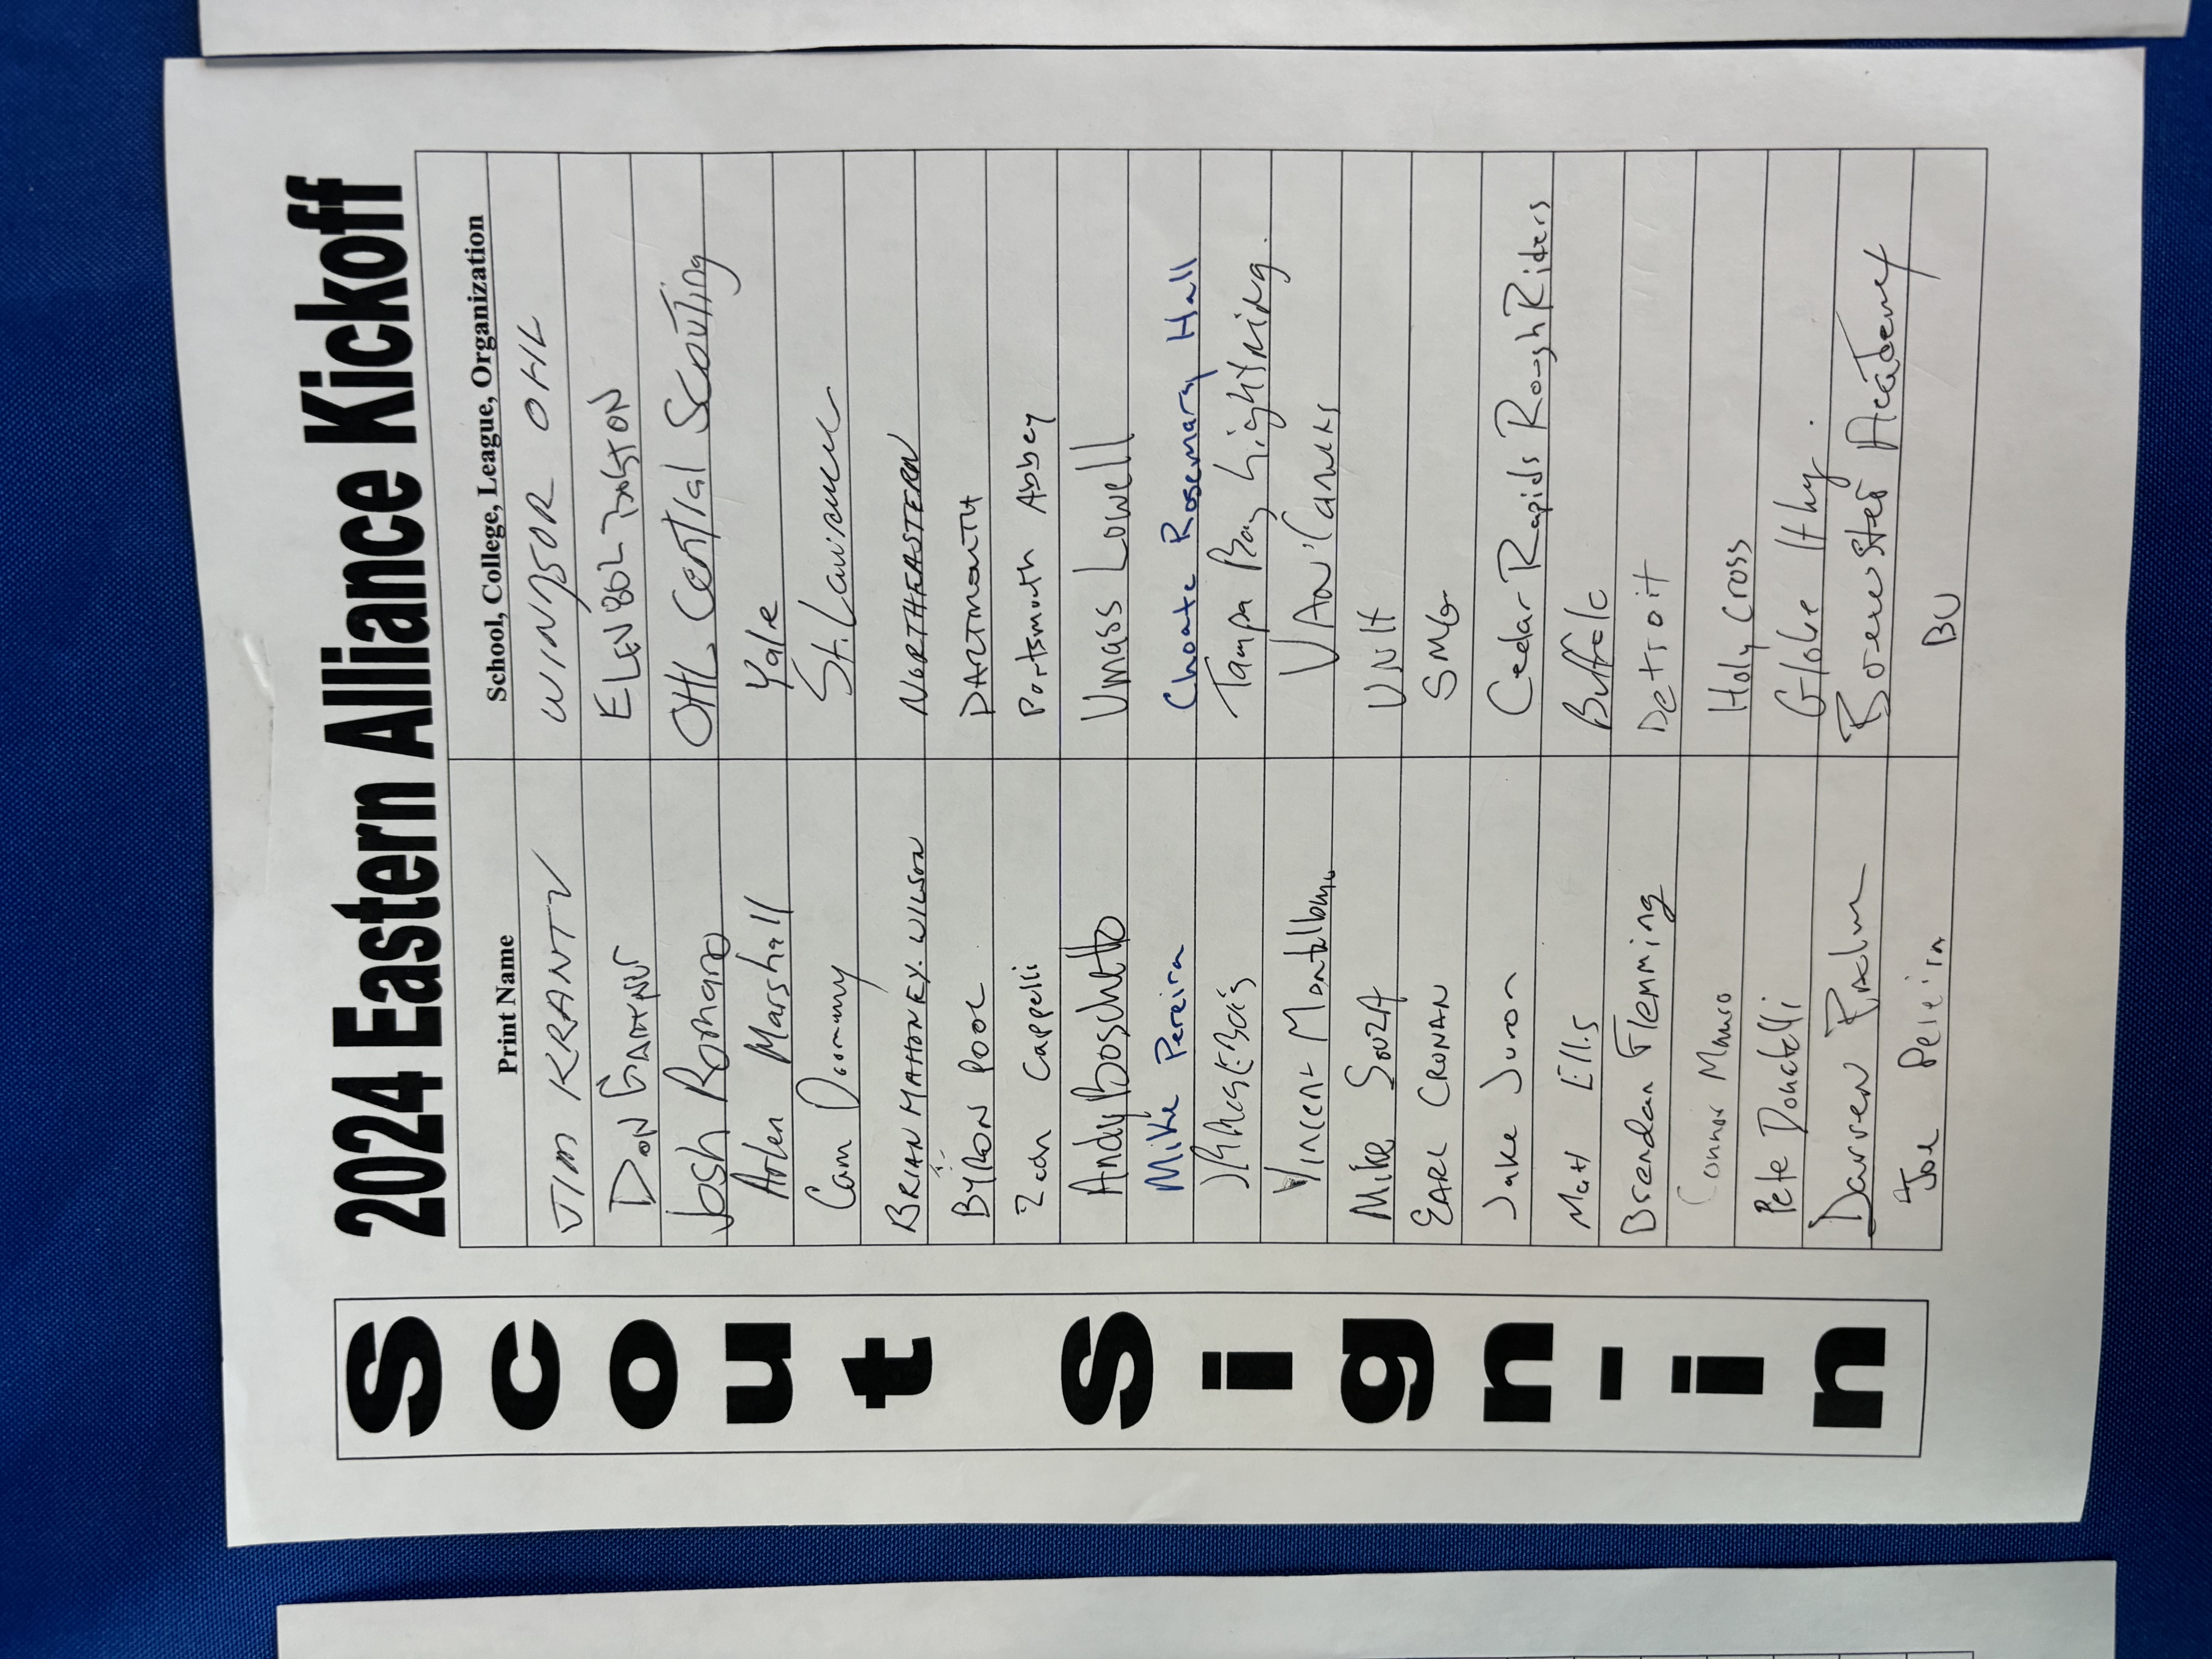 2024 Eastern Alliance Kickoff
Scout Sign-in
Print Name School, College, League, Organization
JIM KRANTZ WINDSOR OHL
DON
Josh Romano OHL Central Scouting
Arlen Marshall Yale
Cam St. Lawrence
BRIAN MAHONEY-WILSON NORTHEASTERN
BYRON POOL DARTMOUTH
Zach Cappelli Portsmouth Abbey
Andy Boschetto Umass Lowell
Mike Pereira Choate Rosemary Hall
Tampa Bay Lightning.
Vincent Montalbano Van Canucks
Mike Souza UNH
EARL CRONAN SMG
Jake Juron Cedar Rapids RoughRiders
Matt Ellis Buffalo
Brendan Flemming Detroit
Connor Holy Cross
Pete Donatelli
Darren Academy
Joe Pereira BU